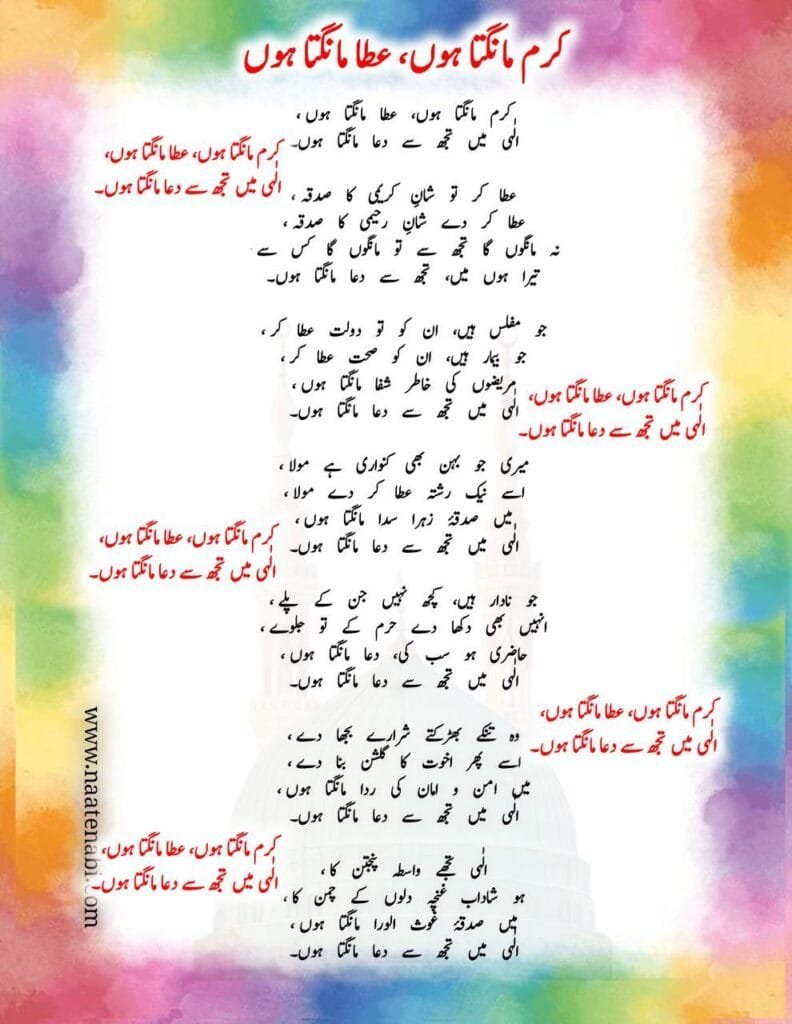 کرم مانگتا ہوں، عطا مانگتا ہوں
کرم مانگتا ہوں، عطا مانگتا ہوں،
الٰہی میں تجھ سے دعا مانگتا ہوں۔
کرم مانگتا ہوں، عطا مانگتا ہوں،
الٰہی میں تجھ سے دعا مانگتا ہوں۔
عطا کر تو شانِ کریمی کا صدقہ،
عطا کر دے شانِ رحیمی کا صدقہ،
نہ مانگوں گا تجھ سے تو مانگوں گا کس سے
تیرا ہوں میں، تجھ سے دعا مانگتا ہوں۔
جو مفلس ہیں، ان کو تو دولت عطا کر،
جو بیمار ہیں، ان کو صحت عطا کر،
مریضوں کی خاطر شفا مانگتا ہوں،
الٰہی میں تجھ سے دعا مانگتا ہوں۔
کرم مانگتا ہوں، عطا مانگتا ہوں،
الٰہی میں تجھ سے دعا مانگتا ہوں۔
میری جو بہن بھی کنواری ہے مولا،
اسے نیک رشتہ عطا کر دے مولا،
میں صدقۂ زہرا سدا مانگتا ہوں،
الٰہی میں تجھ سے دعا مانگتا ہوں۔
کرم مانگتا ہوں، عطا مانگتا ہوں،
الٰہی میں تجھ سے دعا مانگتا ہوں۔
جو نادار ہیں، کچھ نہیں جن کے پلے،
انہیں بھی دکھا دے حرم کے تو جلوے،
حاضری ہو سب کی، دعا مانگتا ہوں،
الٰہی میں تجھ سے دعا مانگتا ہوں۔
کرم مانگتا ہوں، عطا مانگتا ہوں،
الٰہی میں تجھ سے دعا مانگتا ہوں۔
وہ تنکے بھڑکتے شرارے بجھا دے،
اسے پھر اخوت کا گلشن بنا دے،
میں امن و امان کی ردا مانگتا ہوں،
الٰہی میں تجھ سے دعا مانگتا ہوں۔
کرم مانگتا ہوں، عطا مانگتا ہوں،
الٰہی میں تجھ سے دعا مانگتا ہوں۔
الٰہی تجھے واسطہ پنجتن کا،
ہو شاداب غنچہ دلوں کے چمن کا،
میں صدقۂ غوث الورا مانگتا ہوں،
الٰہی میں تجھ سے دعا مانگتا ہوں۔
www.naatenabi.com